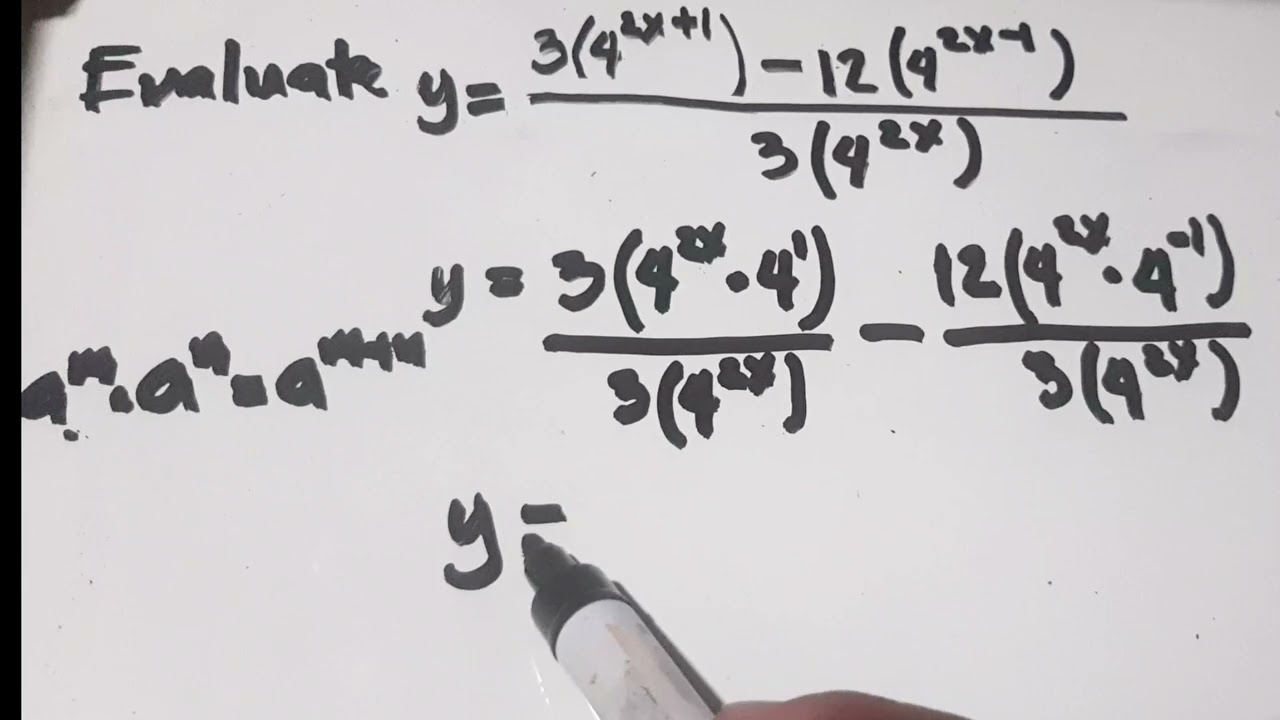 Evaluate y = \frac{3(4^{2x+1}) - 12(4^{2x-1})}{3(4^{2x})}
y = \frac{3(4^{2x} \cdot 4^{1})}{3(4^{2x})} - \frac{12(4^{2x} \cdot 4^{-1})}{3(4^{2x})}
a^{m} \cdot a^{n} = a^{m+n}
y =